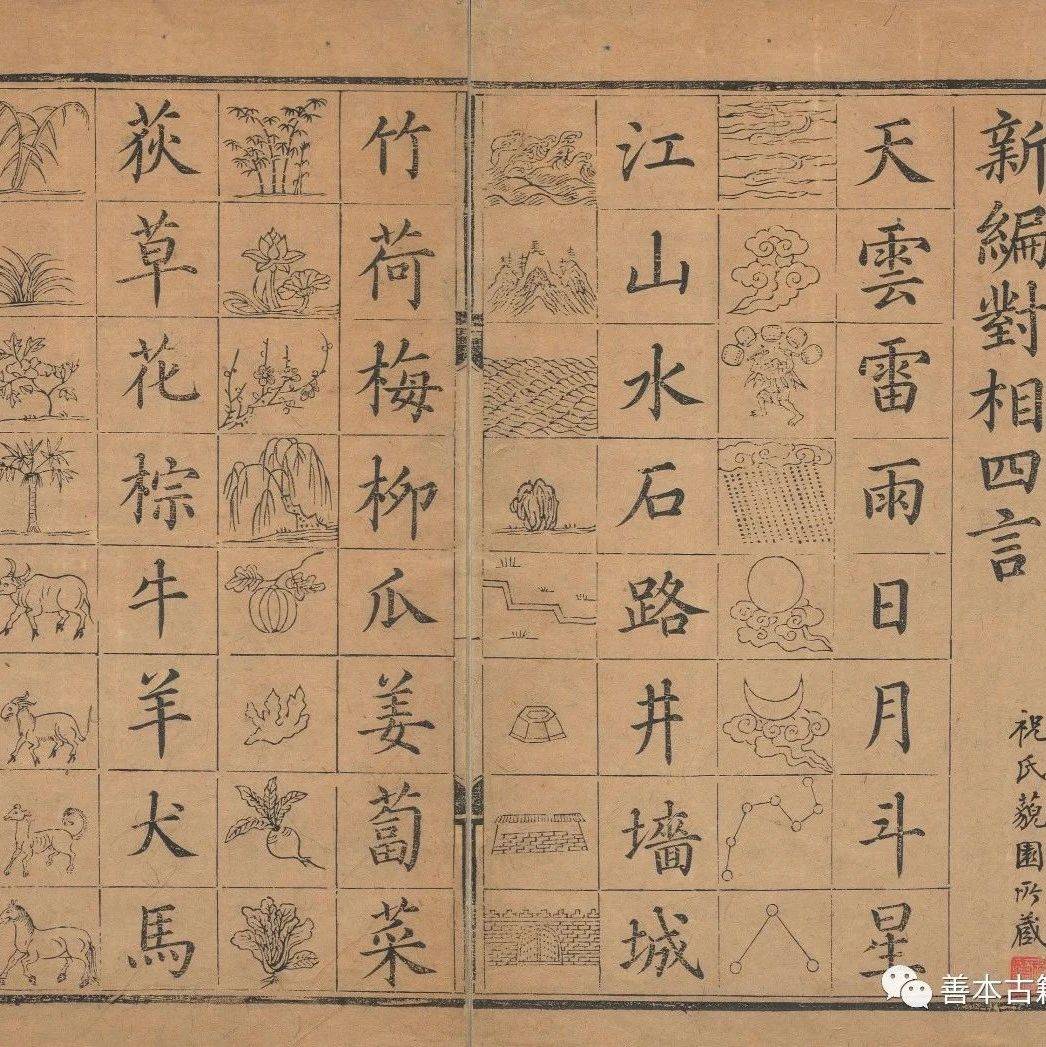 新編對相四言
祝氏藐園所藏
天雲雷雨日月斗星
江山水石路井墻城
竹荷梅柳瓜姜蔔菜
荻草花棕牛羊犬馬
善本古籍